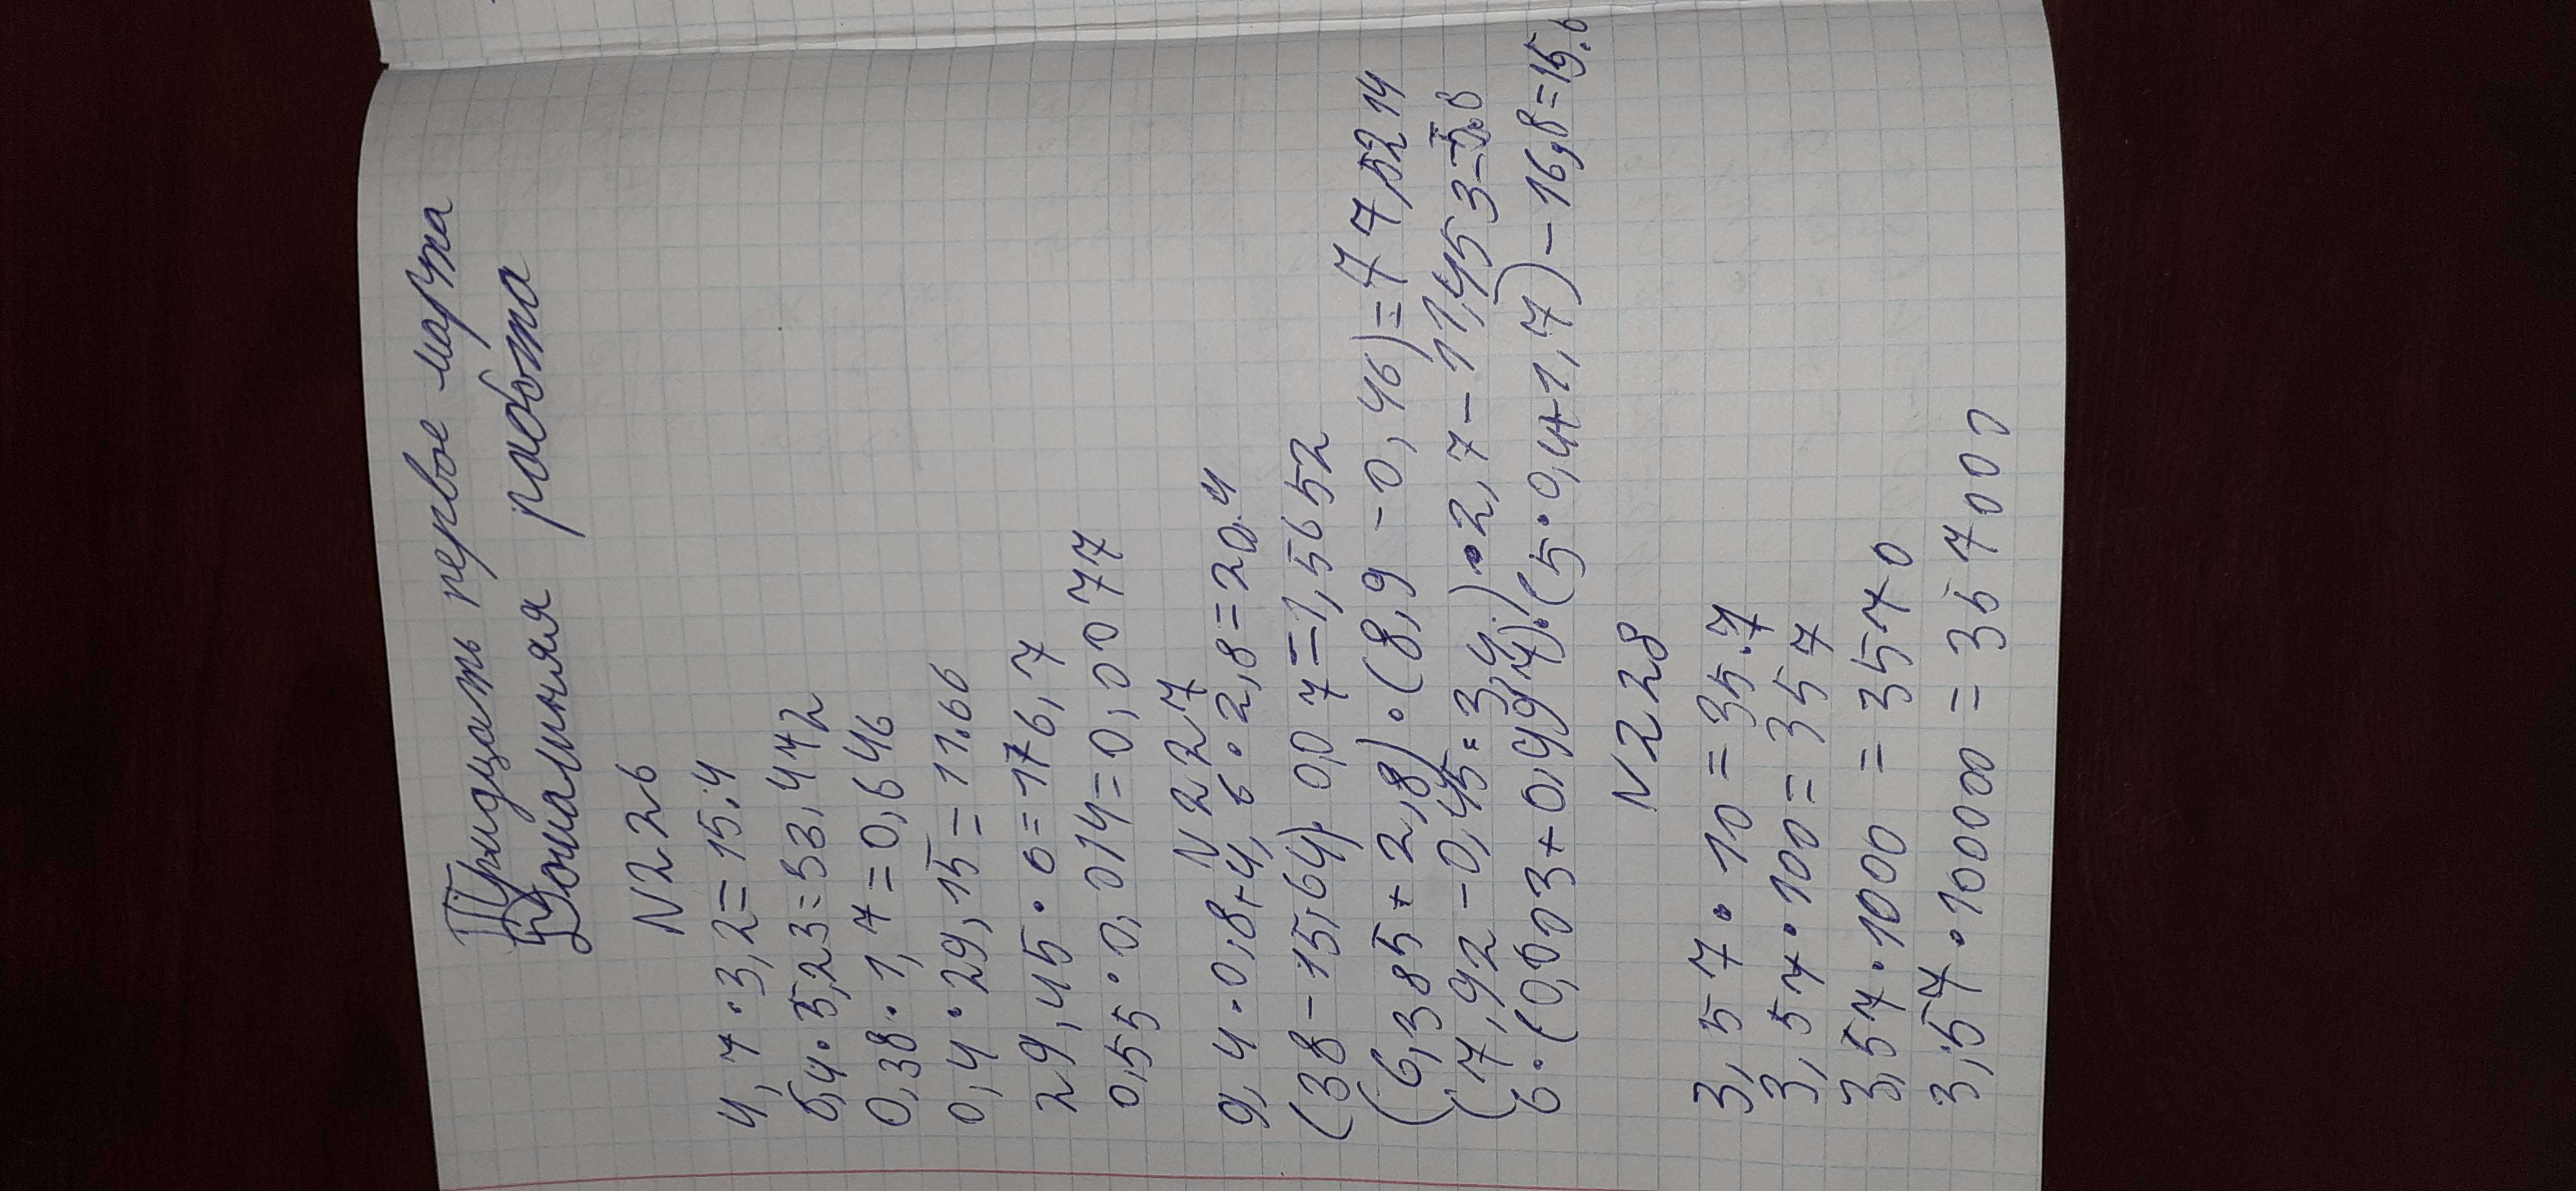 Тридцать первое марта
Домашняя работа
N226
4,7·3,2=15,4
6,4·5,23=53,472
0,38·1,7=0,646
0,4·29,15=11.66
29,45·6=176,7
0,55·0,014=0,0077
N227
9,4·0,8+4,6·2,8=20,4
(38-15,64)·0,07=1,5652
(6,385+2,8)·(8,9-0,46)=77,5214
(17,92-0,45=3,4)·2,7-11,453-5.8
6·(0,003+0,4997)·(5·0,4+1,7)-16,8=15.6
N228
3,57·10=35.7
3,57·100=357
3,57·1000=3570
3,57·10000=357000